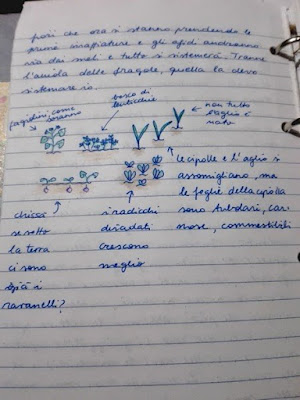 fiori che ora si stanno prendendo le
prime annaffiature e gli afidi andranno
via dai meli e tutto si sistemerà. Tranne
l'aiuola delle fragole, quella la devo
sistemare io.
fagiolini come
saranno
bosco di
lenticchie
non tutto
l'aglio è
nato
le cipolle e l'aglio si
assomigliano, ma
le foglie della cipolla
sono tubolari, car
nose, commestibili
chissà
se sotto
la terra
ci sono
già i
ravanelli?
i radicchi
diradati
crescono
meglio